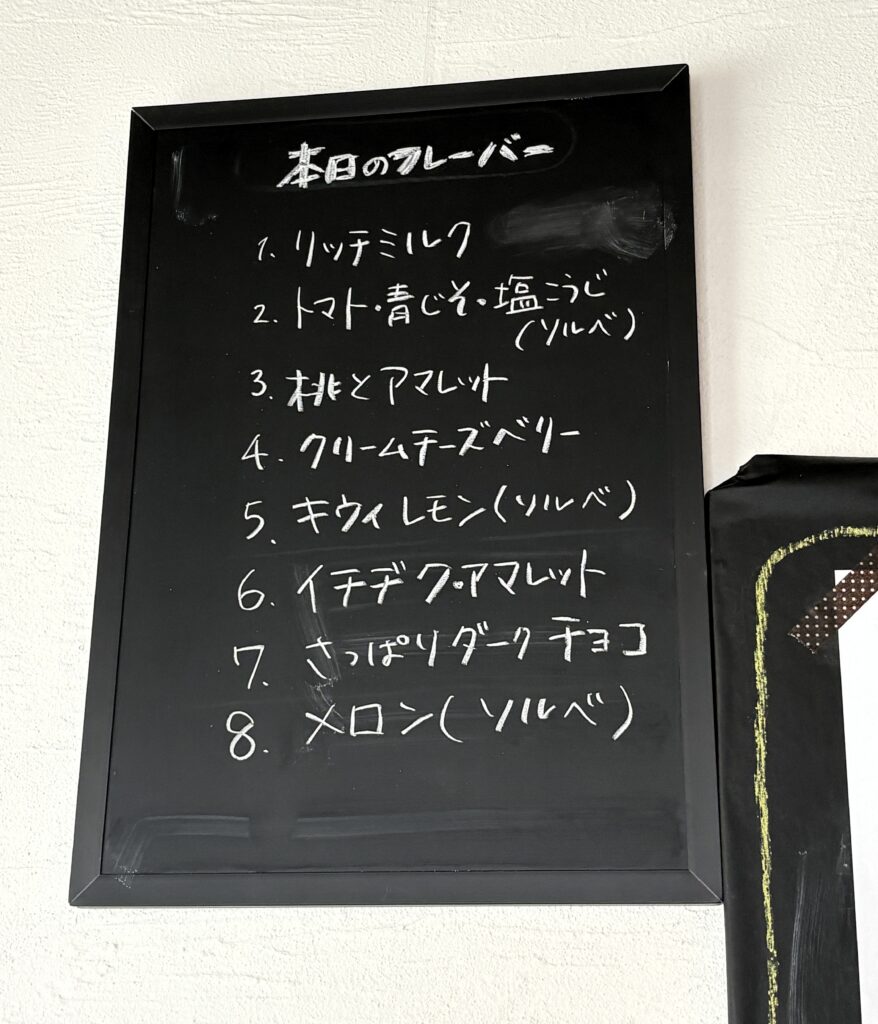 本日のフレーバー
1. リッチミルク
2. トマト・青じそ・塩こうじ
(ソルベ)
3. 桃とアマレット
4. クリームチーズベリー
5. キウィレモン(ソルベ)
6. イチヂク・アマレット
7. さっぱりダークチョコ
8. メロン(ソルベ)